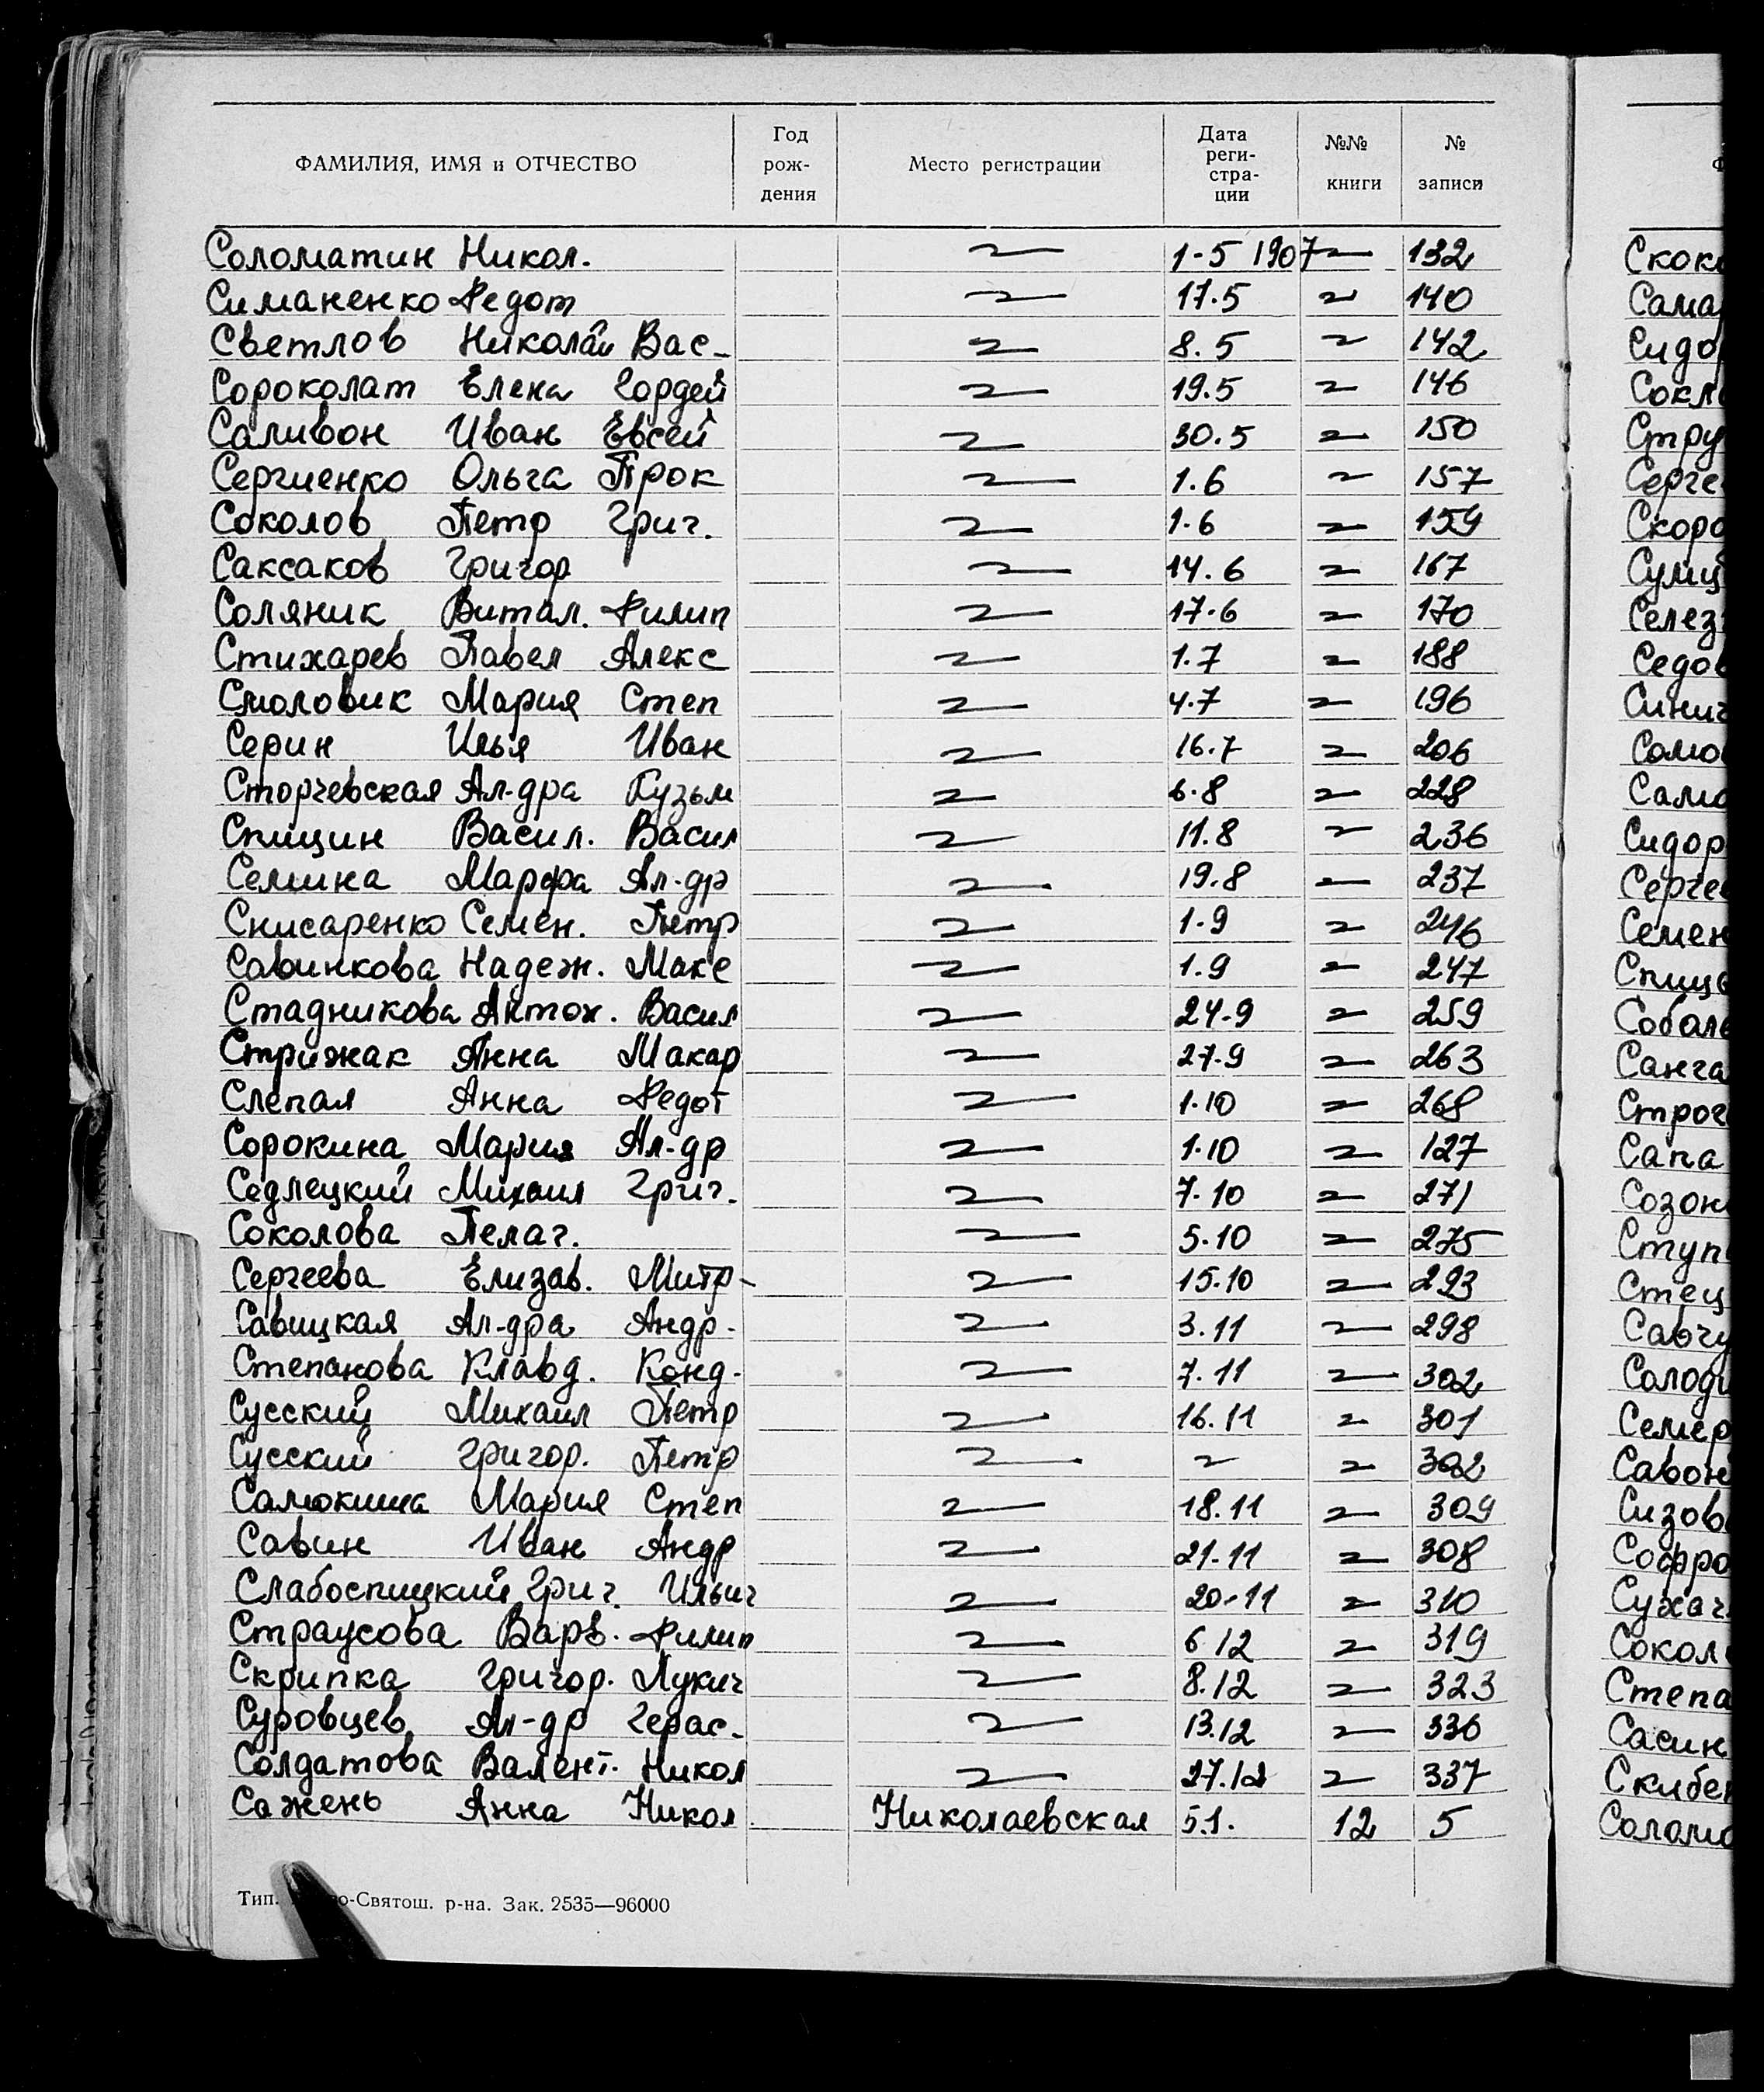 ФАМИЛИЯ, ИМЯ и ОТЧЕСТВО Год рож- дения Место регистрации Дата реги- стра- ции №№ книги № записи
Соломатин Никол. 〃 1-5 1907 〃 132
Симаненко Федот 〃 17.5 〃 140
Светлов Николай Вас- 〃 8.5 〃 142
Сороколат Елена Гордей 〃 19.5 〃 146
Саливон Иван Евсей 〃 30.5 〃 150
Сергиенко Ольга Прок 〃 1.6 〃 157
Соколов Петр Григ. 〃 1.6 〃 159
Саксаков Григор 〃 14.6 〃 167
Соляник Витал. Филип 〃 17.6 〃 170
Стихарев Павел Алекс 〃 1.7 〃 188
Смоловик Мария Степ 〃 4.7 〃 196
Серин Илья Иван 〃 16.7 〃 206
Сторчевская Ал-дра Кузьм 〃 6.8 〃 228
Спицин Васил. Васил 〃 11.8 〃 236
Семина Марфа Ал-др 〃 19.8 〃 237
Снисаренко Семен. Петр 〃 1.9 〃 246
Савинкова Надеж. Макс 〃 1.9 〃 247
Стадникова Антон. Васил 〃 24.9 〃 259
Стрижак Анна Макар 〃 27.9 〃 263
Слепая Анна Федот 〃 1.10 〃 268
Сорокина Мария Ал-др 〃 1.10 〃 127
Седлецкий Михаил Григ. 〃 7.10 〃 271
Соколова Пелаг. 〃 5.10 〃 275
Сергеева Елизав. Митр- 〃 15.10 〃 293
Савицкая Ал-дра Андр. 〃 3.11 〃 298
Степанова Клавд. Конд. 〃 7.11 〃 302
Сусский Михаил Петр 〃 16.11 〃 301
Сусский Григор. Петр 〃 〃 〃 302
Мария Степ 〃 18.11 〃 309
Савин Иван Андр 〃 21.11 〃 308
Слабоспицкий Григ. Ильич 〃 20.11 〃 310
Страусова Варв. Филип 〃 6 12 〃 319
Скрипка Григор. Лукич 〃 8.12 〃 323
Суровцев Ал-др Герас. 〃 13.12 〃 336
Солдатова Валент. Никол 〃 27.12 〃 337
Сажень Анна Никол Николаевская 5.1. 12 5
Тип. Святош. р-на. Зак. 2535—96000